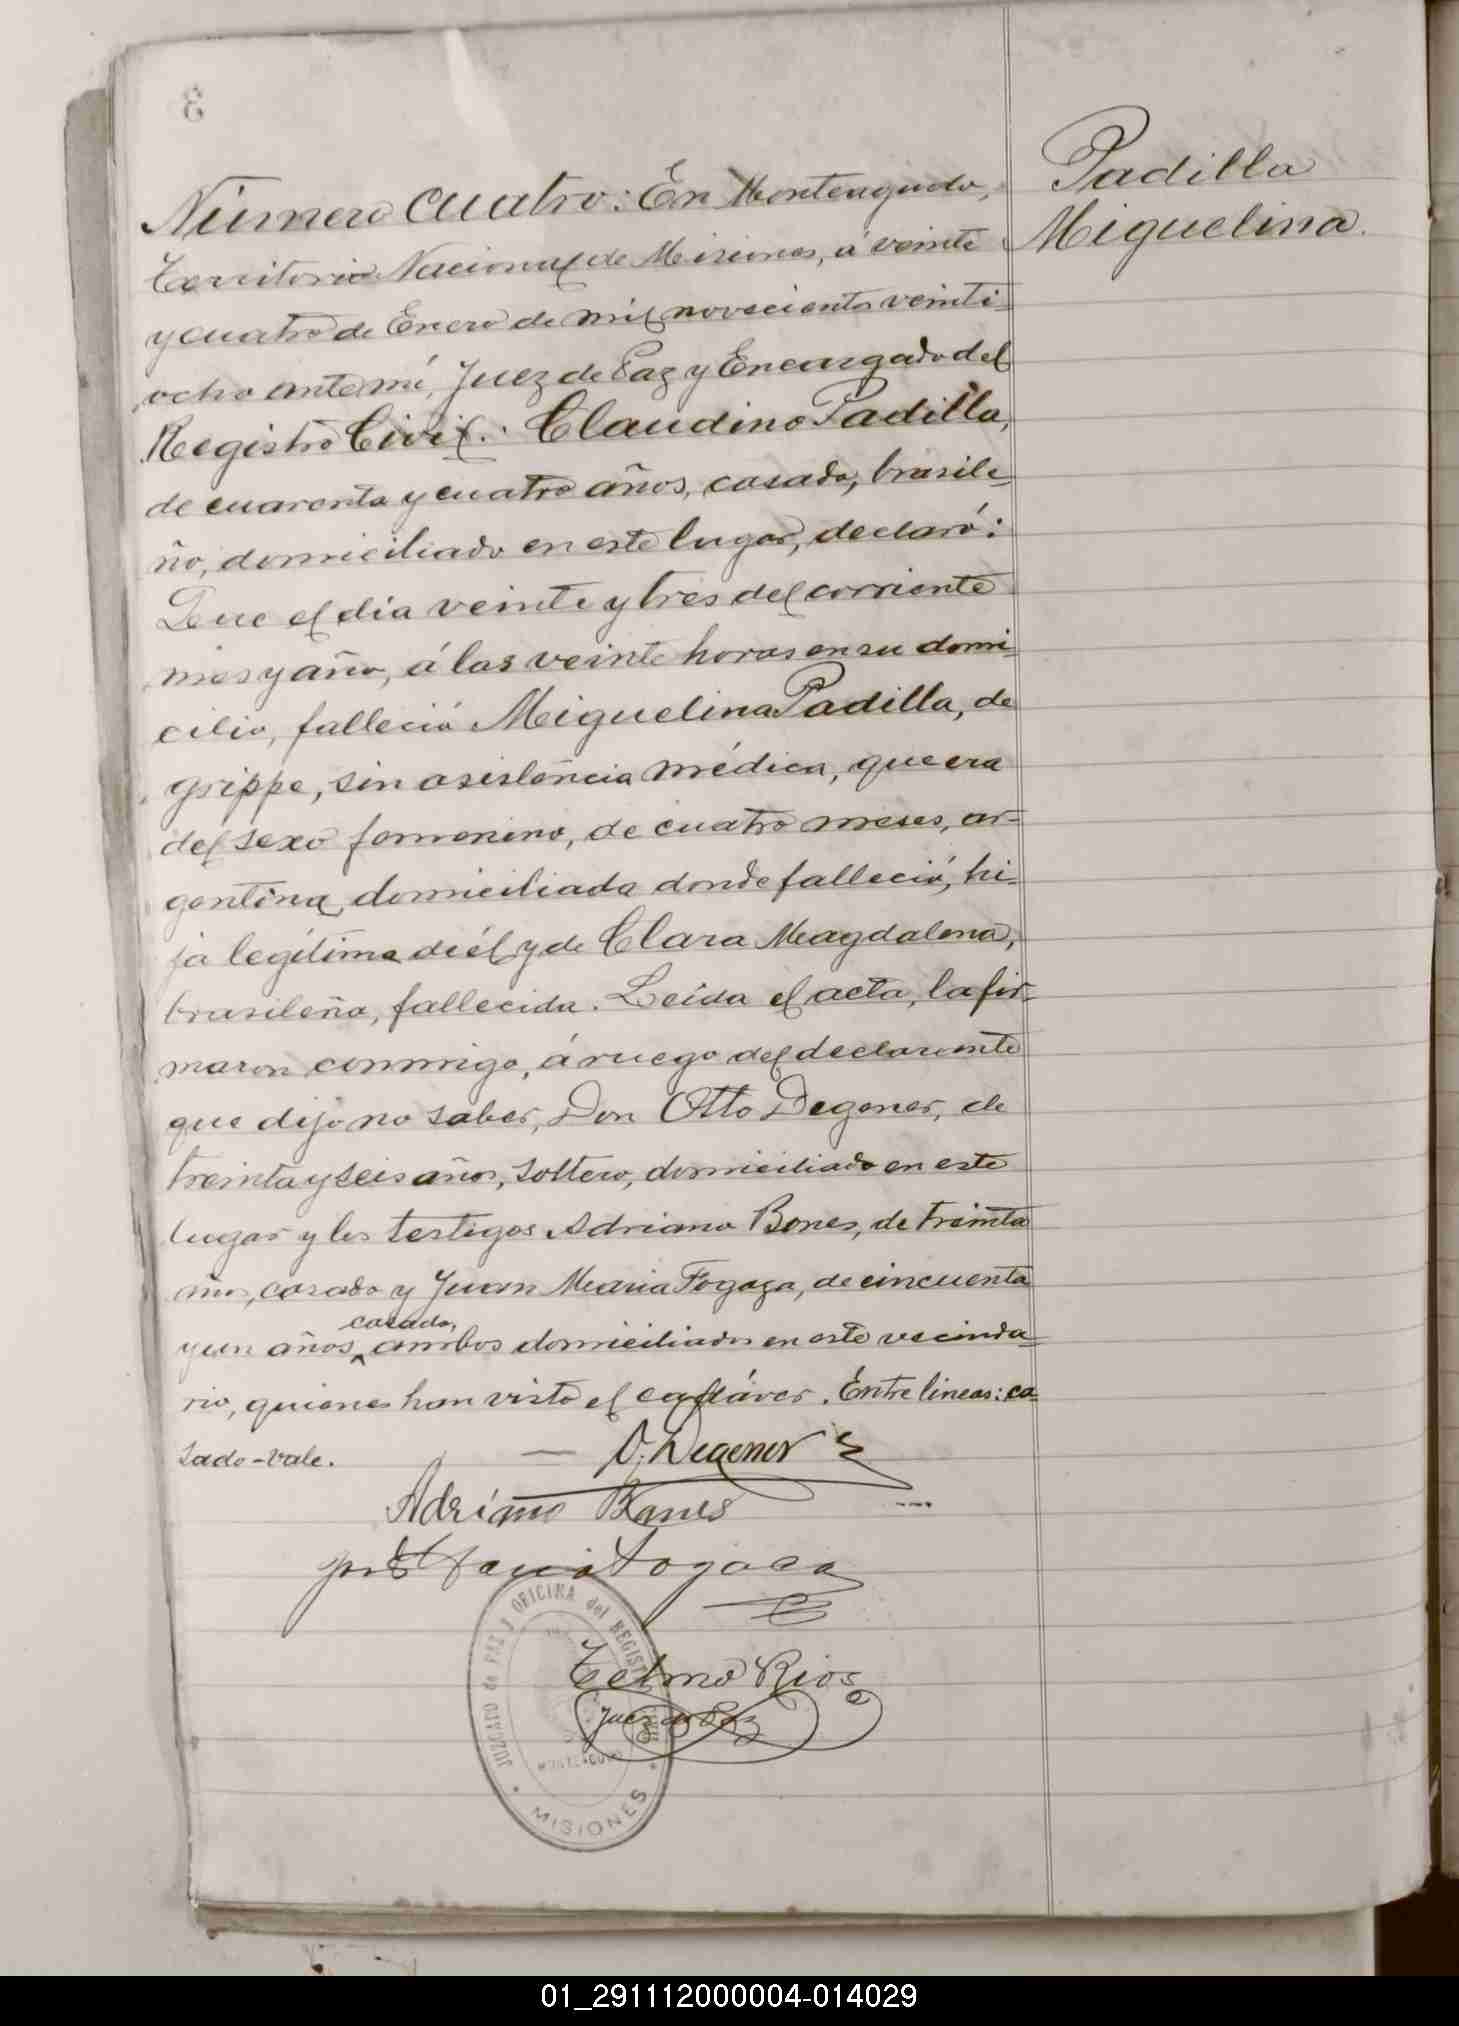 3
Padilla
Miguelina.
Número cuatro: En Monteagudo,
Territorio Nacional de Misiones, á veinte
y cuatro de Enero de mil novecientos veinti-
ocho ante mí, Juez de Paz y Encargado del
Registro Civil: Claudino Padilla,
de cuarenta y cuatro años, casado, brasile-
ño, domiciliado en este lugar, declaró:
Que el dia veinte y tres del corriente
mes y año, á las veinte horas en su domi-
cilio, falleció Miguelina Padilla, de
grippe, sin asistencia médica, que era
del sexo femenino, de cuatro meses, ar-
gentina, domiciliada donde falleció, hi-
ja legítima de él y de Clara Magdalena,
brasileña, fallecida. Leida el acta, la fir-
maron conmigo, á ruego del declarante
que dijo no saber, Don Otto Degener, de
treinta y seis años, soltero, domiciliado en este
lugar y los testigos Adriano Bones, de treinta
años, casado y Juan Maria Fogaza, de cincuenta
casado,
y un años, ambos domiciliados en este vecinda-
rio, quienes han visto el cadáver. Entre lineas: ca-
sado-vale.
O. Degener
Adriano Bones
Fogaca
Telmo Rios
Juez de Paz
JUZGADO de PAZ y OFICINA del REGISTRO CIVIL
MONTEAGUDO
* MISIONES *
01_291112000004-014029